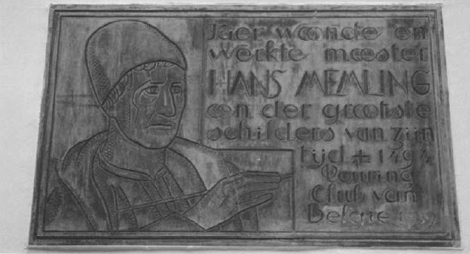 Hier woonde en
werkte meester
HANS MEMLING
een der grootste
schilders van zijn
tijd + 1494
Touring
Club van
België